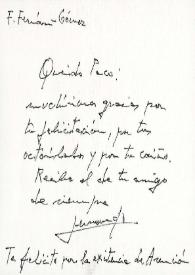 F. Fernán-Gómez
Querido Paco:
muchísimas gracias por
tu felicitación, por tus
y por tu cariño.
Recibe el de tu amigo
de siempre
Fernando
Te felicito por la existencia de Asunción